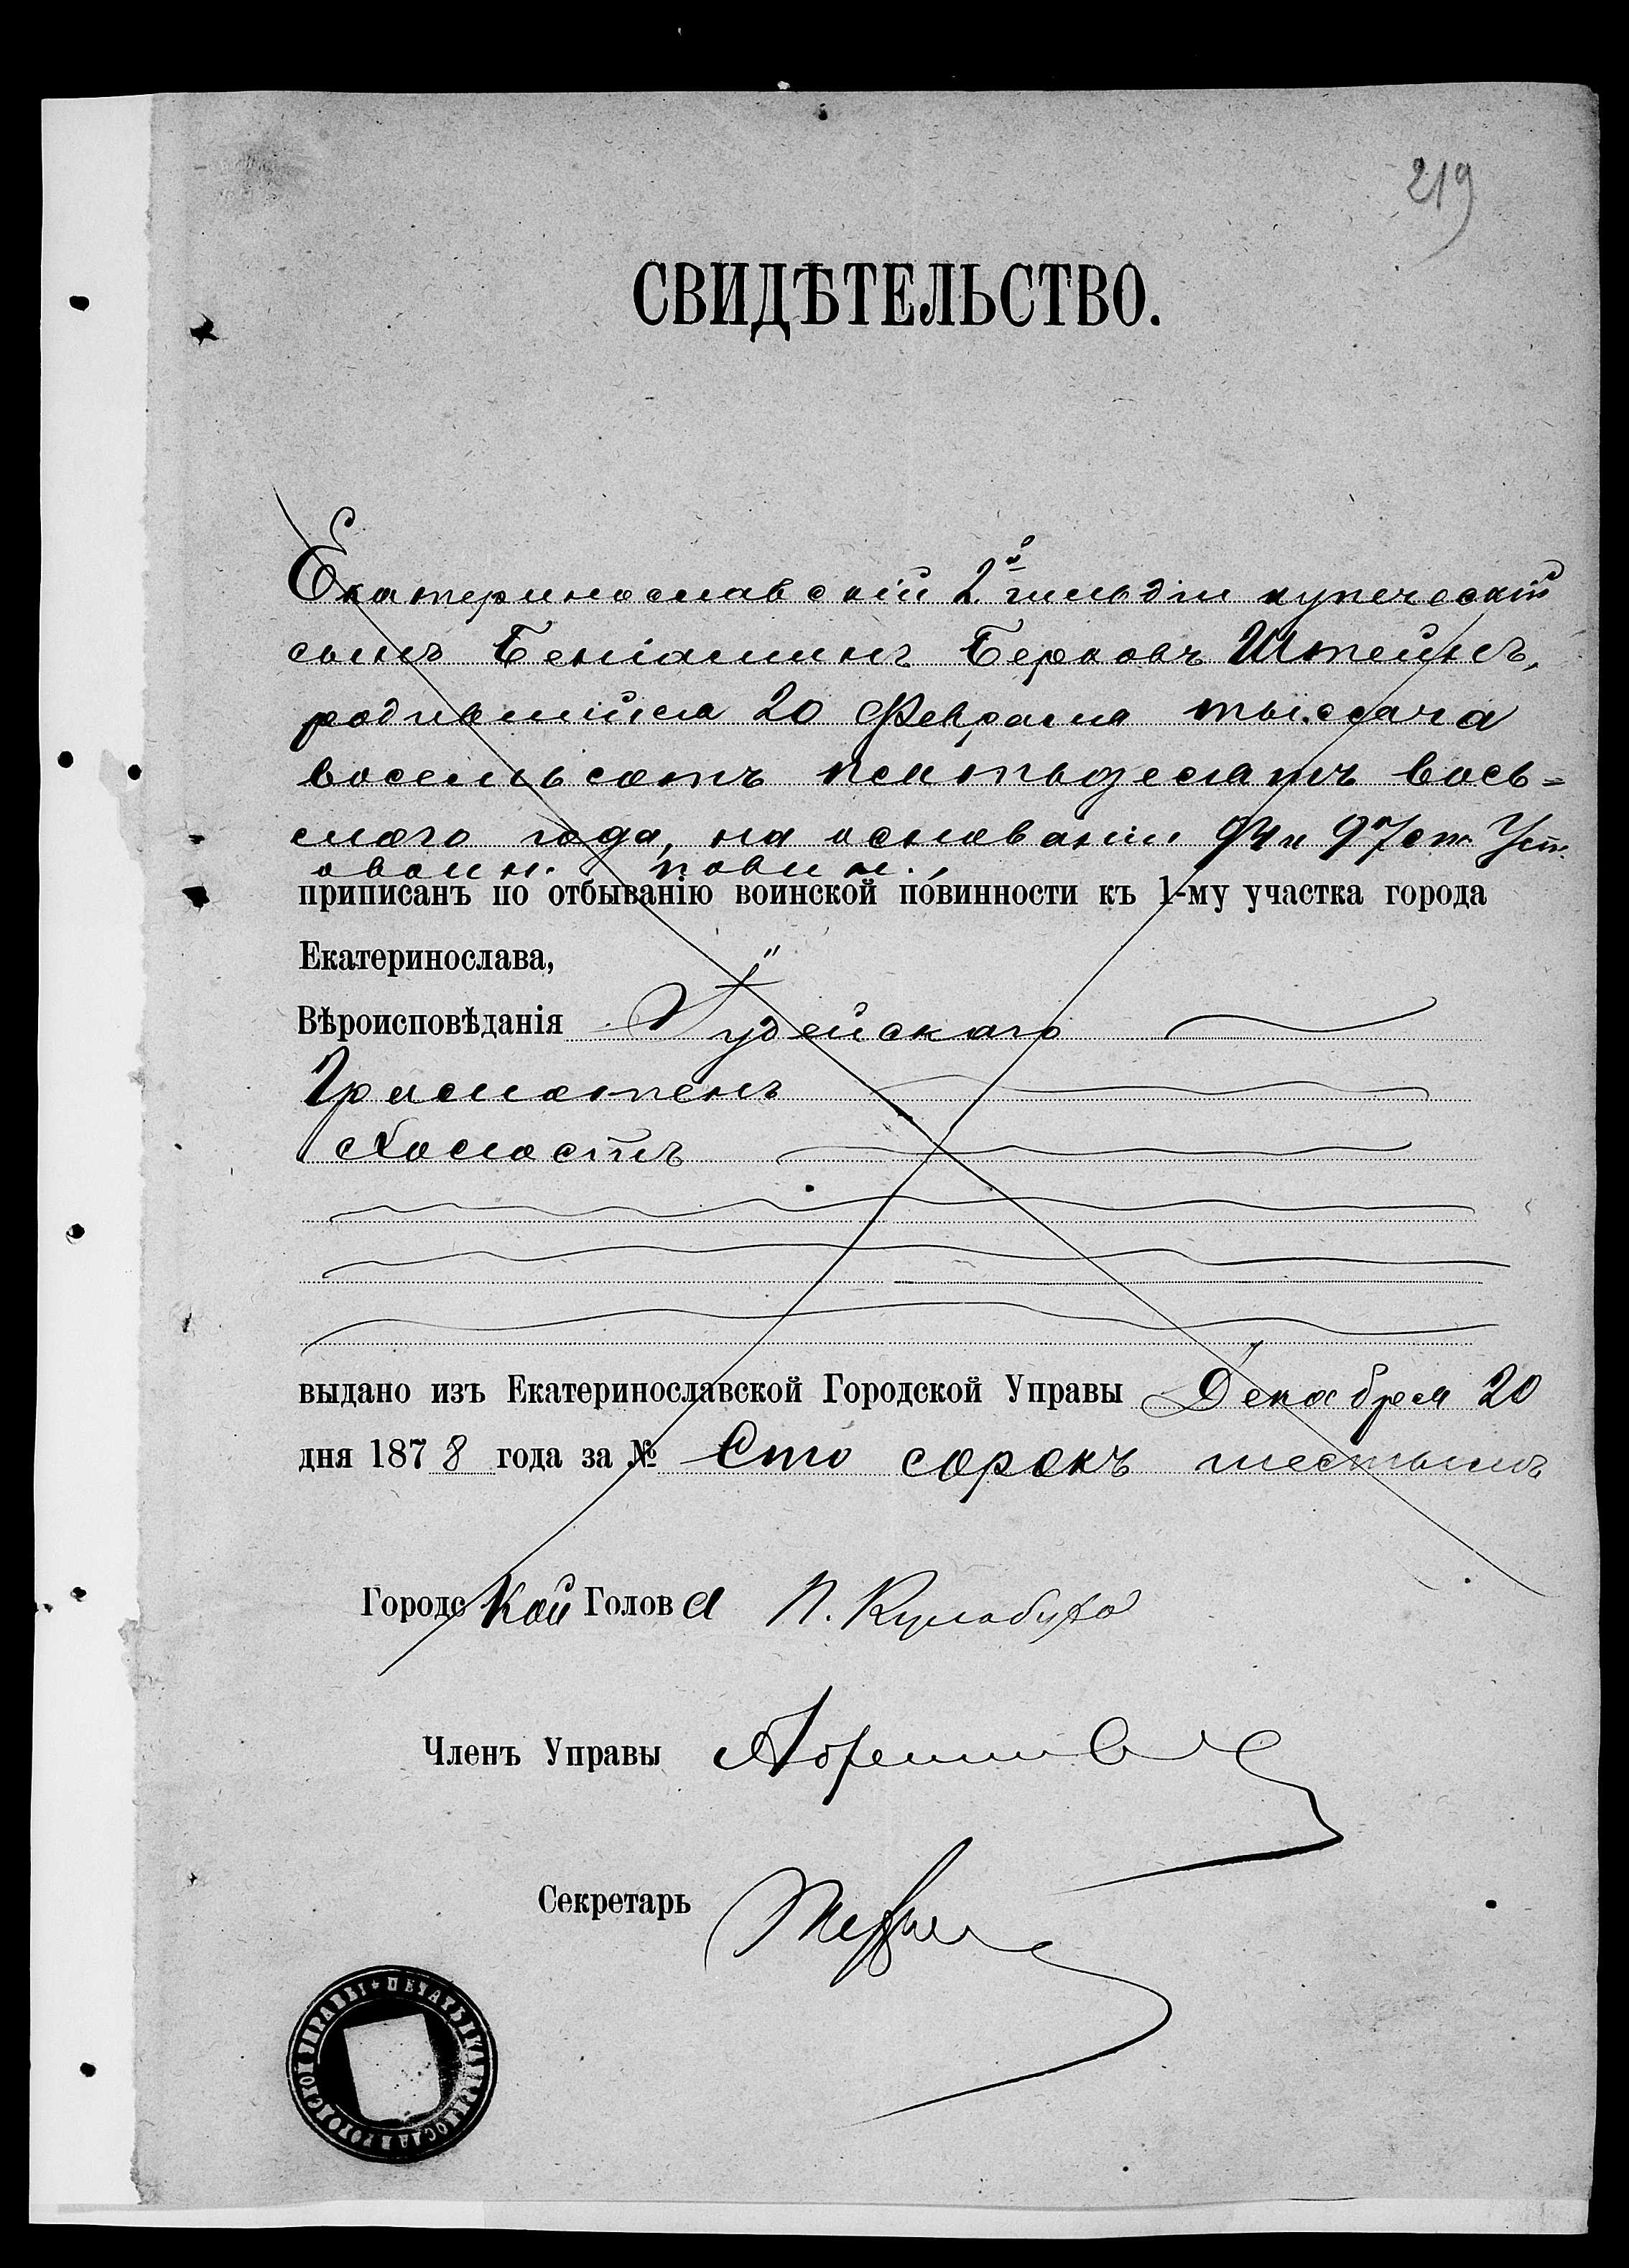 219
СВИДѢТЕЛЬСТВО.
Екатеринославскій 2й гильдіи купеческій
сынъ Беніаминъ Берковъ Штейнъ,
родившійся 20 Февраля тысяча
восемьсотъ пятьдесятъ вось=
маго года, на основаніи 94 и 97 ст. Уст.
о воин. повин.
приписанъ по отбыванію воинской повинности къ 1-му участка города
Екатеринослава,
Вѣроисповѣданія Іудейскаго
Грамотенъ
Холостъ
выдано изъ Екатеринославской Городской Управы Декабря 20
дня 1878 года за № Сто сорокъ шестымъ
Городской Голова П. Кулабухо
Членъ Управы
Секретарь
ПЕЧАТЬ ЕКАТЕРИНОСЛАВ ГОРОДСКОЙ УПРАВЫ